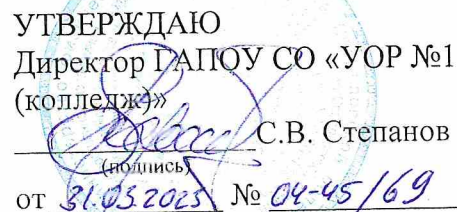 УТВЕРЖДАЮ
Директор ГАПОУ СО «УОР №1
(колледж)»
С.В. Степанов
(подпись)
от 31.03.2025 № 04-45/69